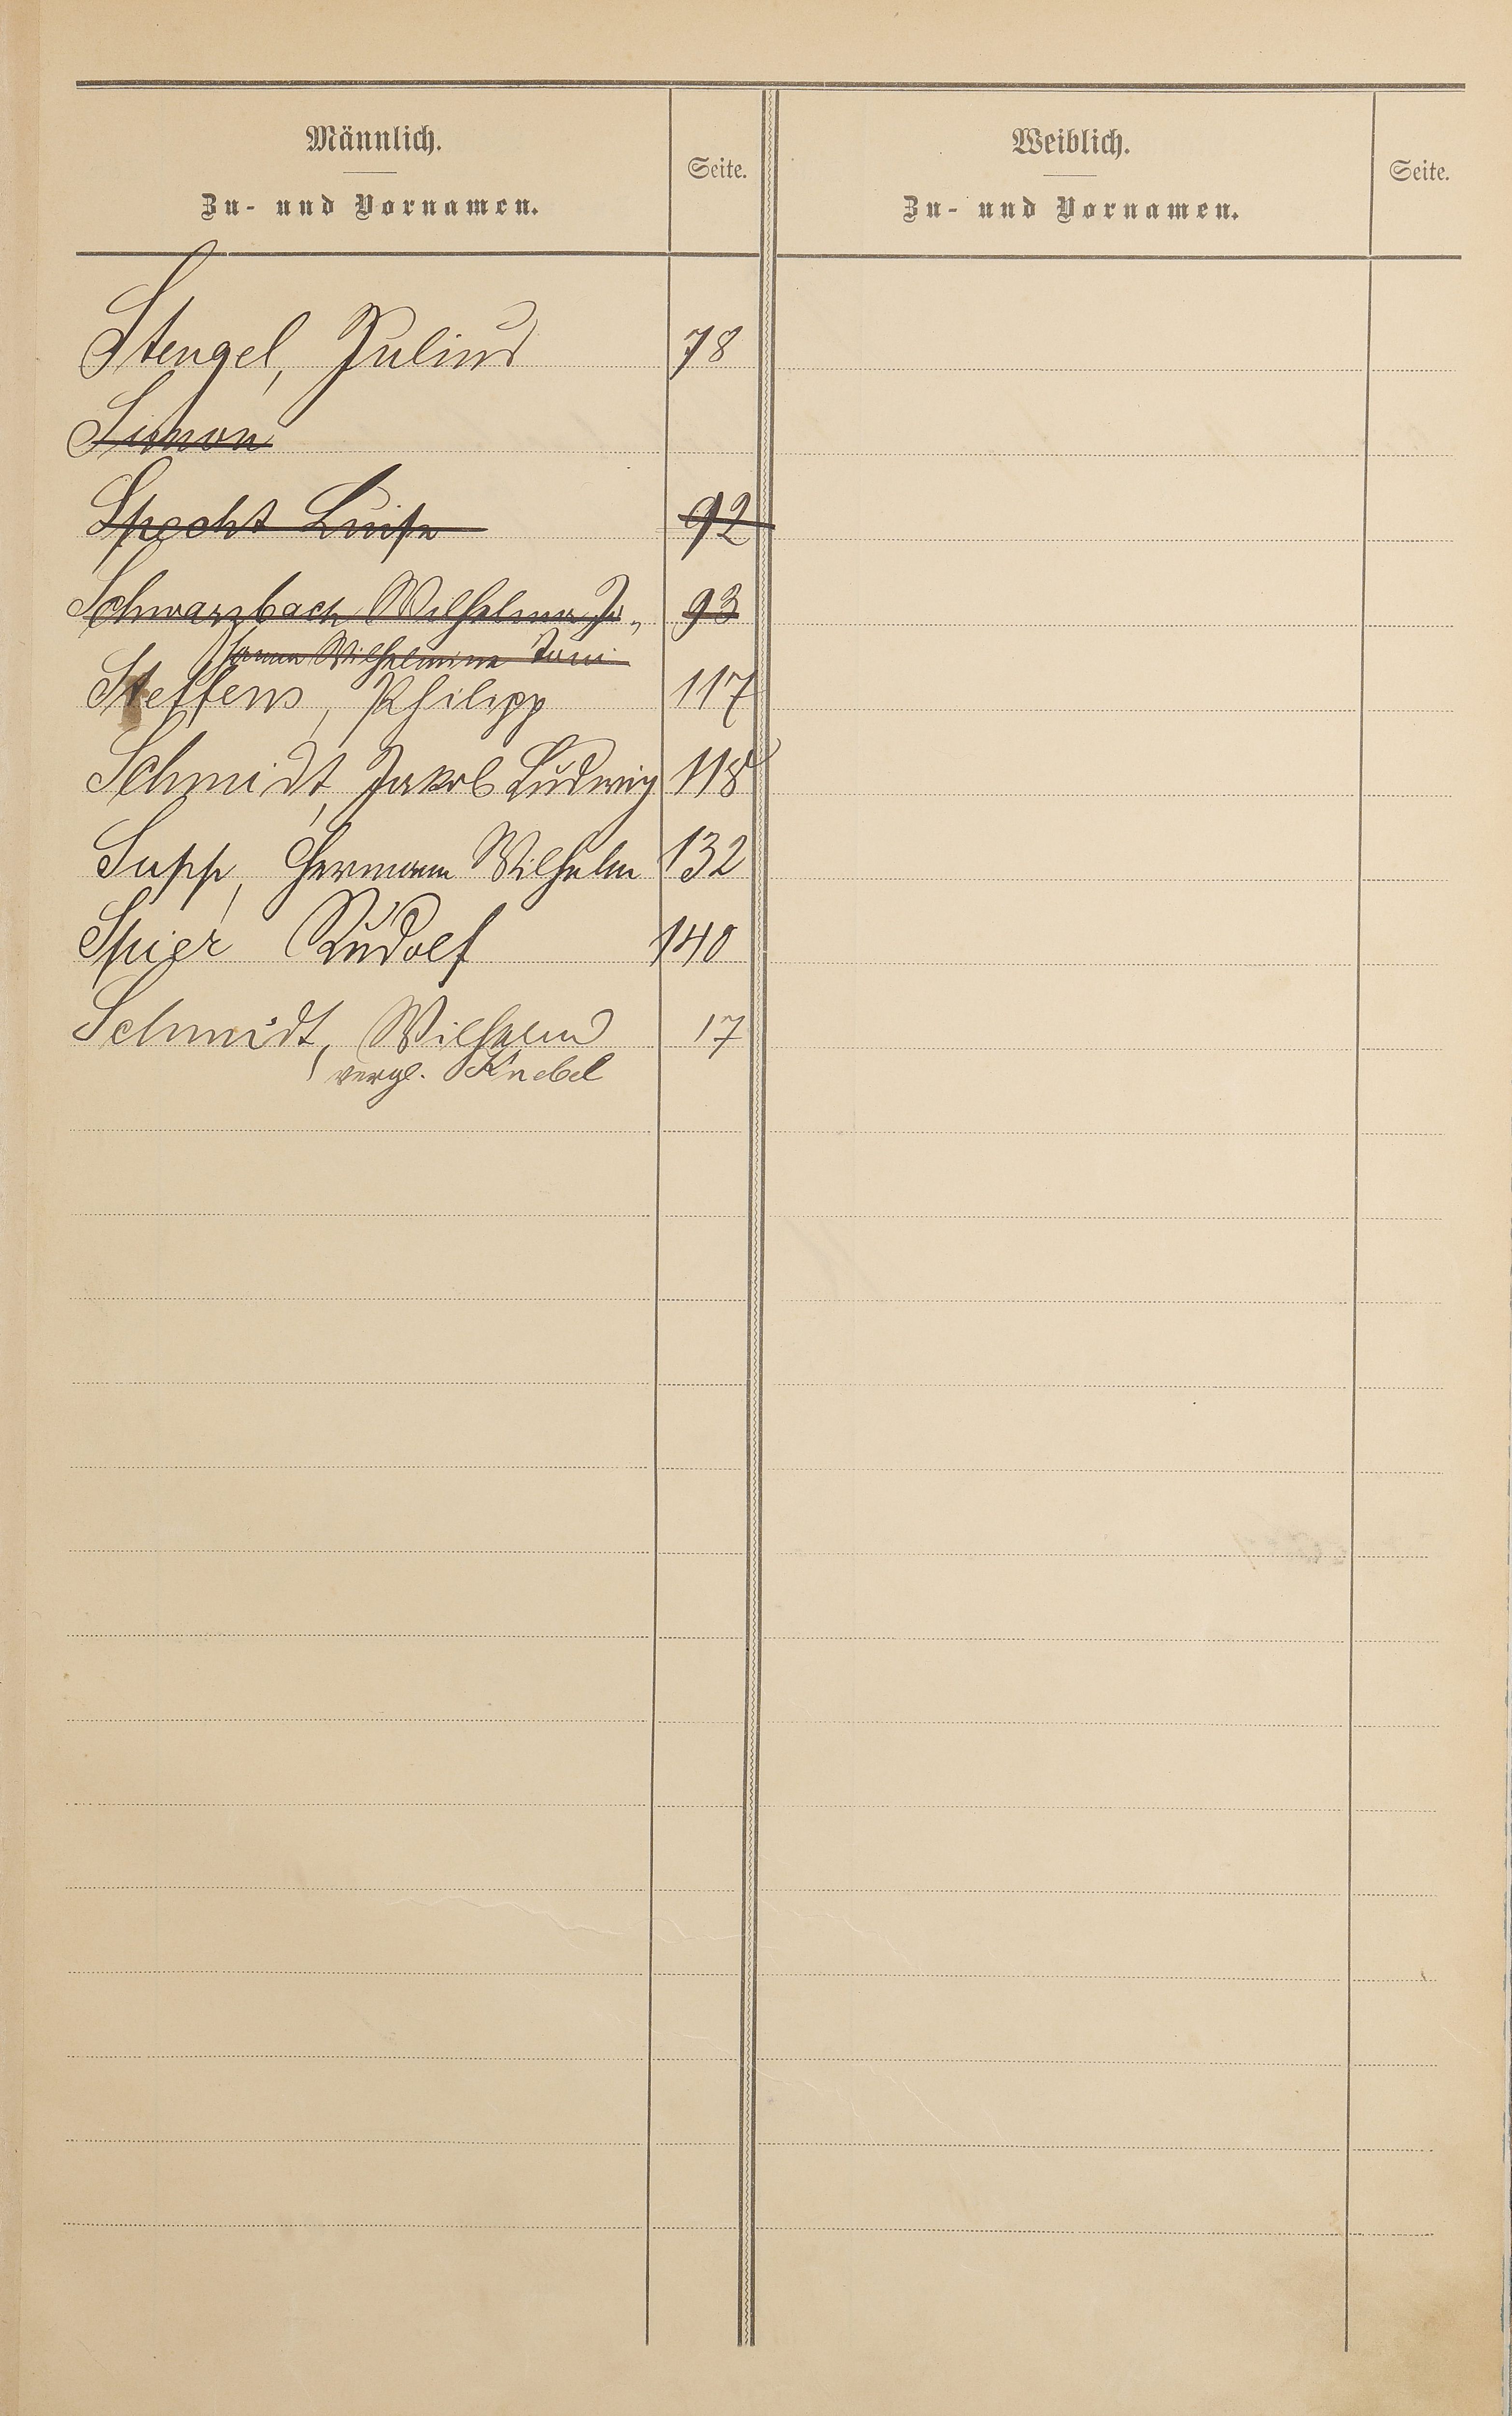 Männlich.
Zu- und Vornamen.
Seite.
Weiblich.
Zu- und Vornamen.
Seite.
Stengel, Julius 78
Simon
Specht Luise 92
Schwarzbach Wilhelmine Jo- 93
hanna Wilhelmine Toni
Steffens, Philipp 117
Schmidt, Jakob Ludwig 118
Supp, Hermann Wilhelm 132
Spier Rudolf 140
Schmidt, Wilhelm 17
vergl. Knebel